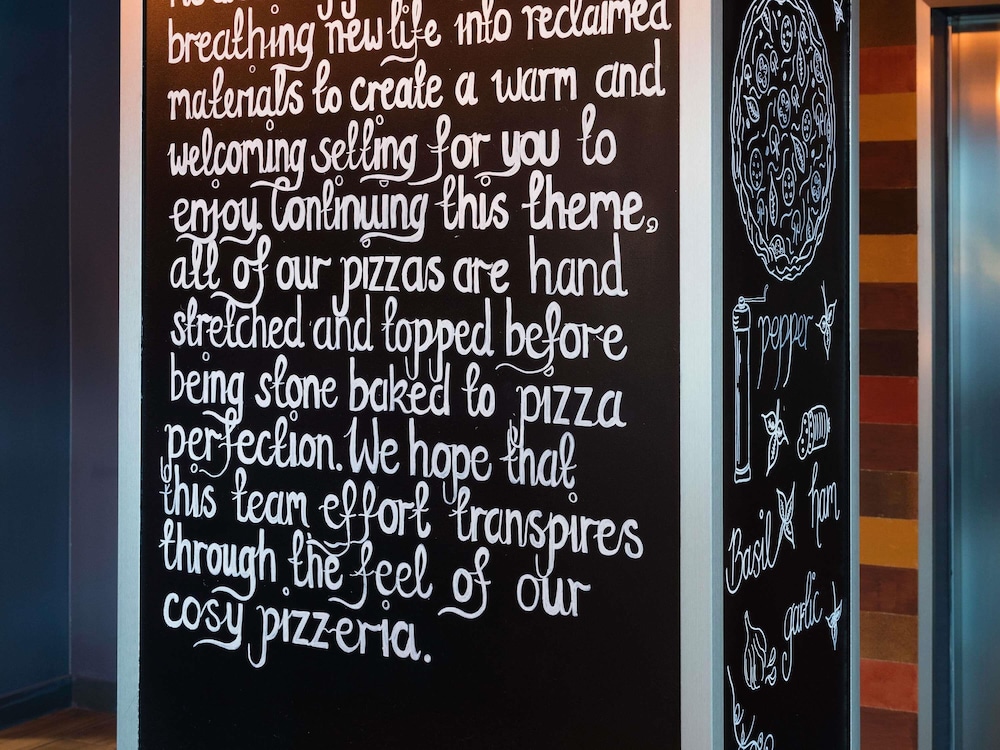 breathing new life into reclaimed
materials to create a warm and
welcoming setting for you to
enjoy. Continuing this theme,
all of our pizzas are hand
stretched and topped before
being stone baked to pizza
perfection. We hope that
this team effort transpires
through the feel of our
cosy pizzeria.
pepper
ham
Basil
garlic